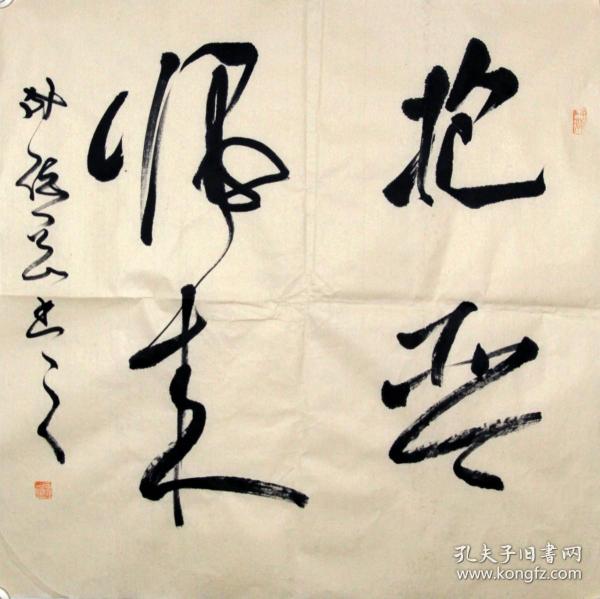 抱琴
归来
书之
孔夫子旧书网
www.kongfz.com